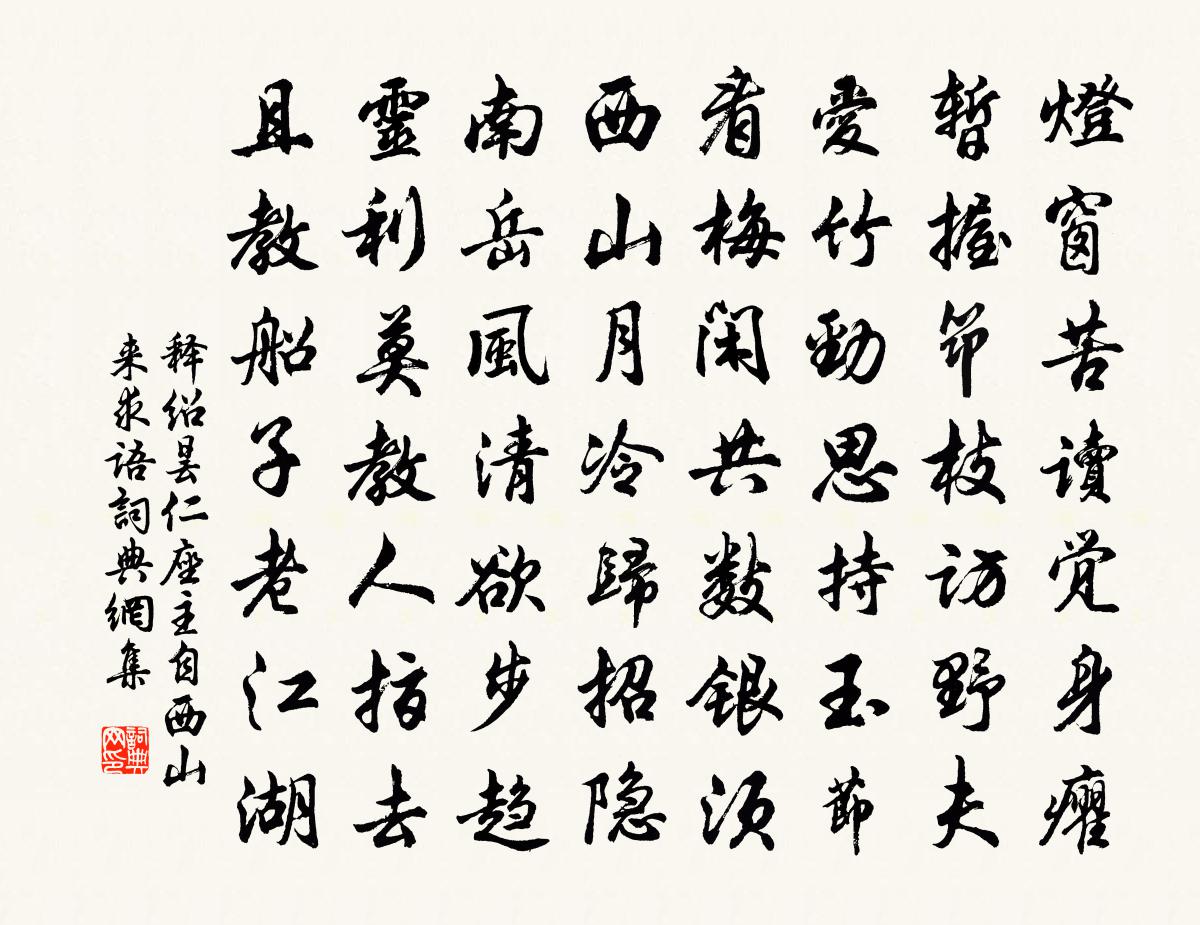 燈窗苦讀覚身癯
暫握笻枝訪野夫
愛竹勁思持玉節
看梅閑共数銀須
西山月冷歸招隐
南岳風清欲步趋
靈利莫教人指去
且教船子老江湖
释绍昙仁座主自西山
来求语詞典網集
詞典網印